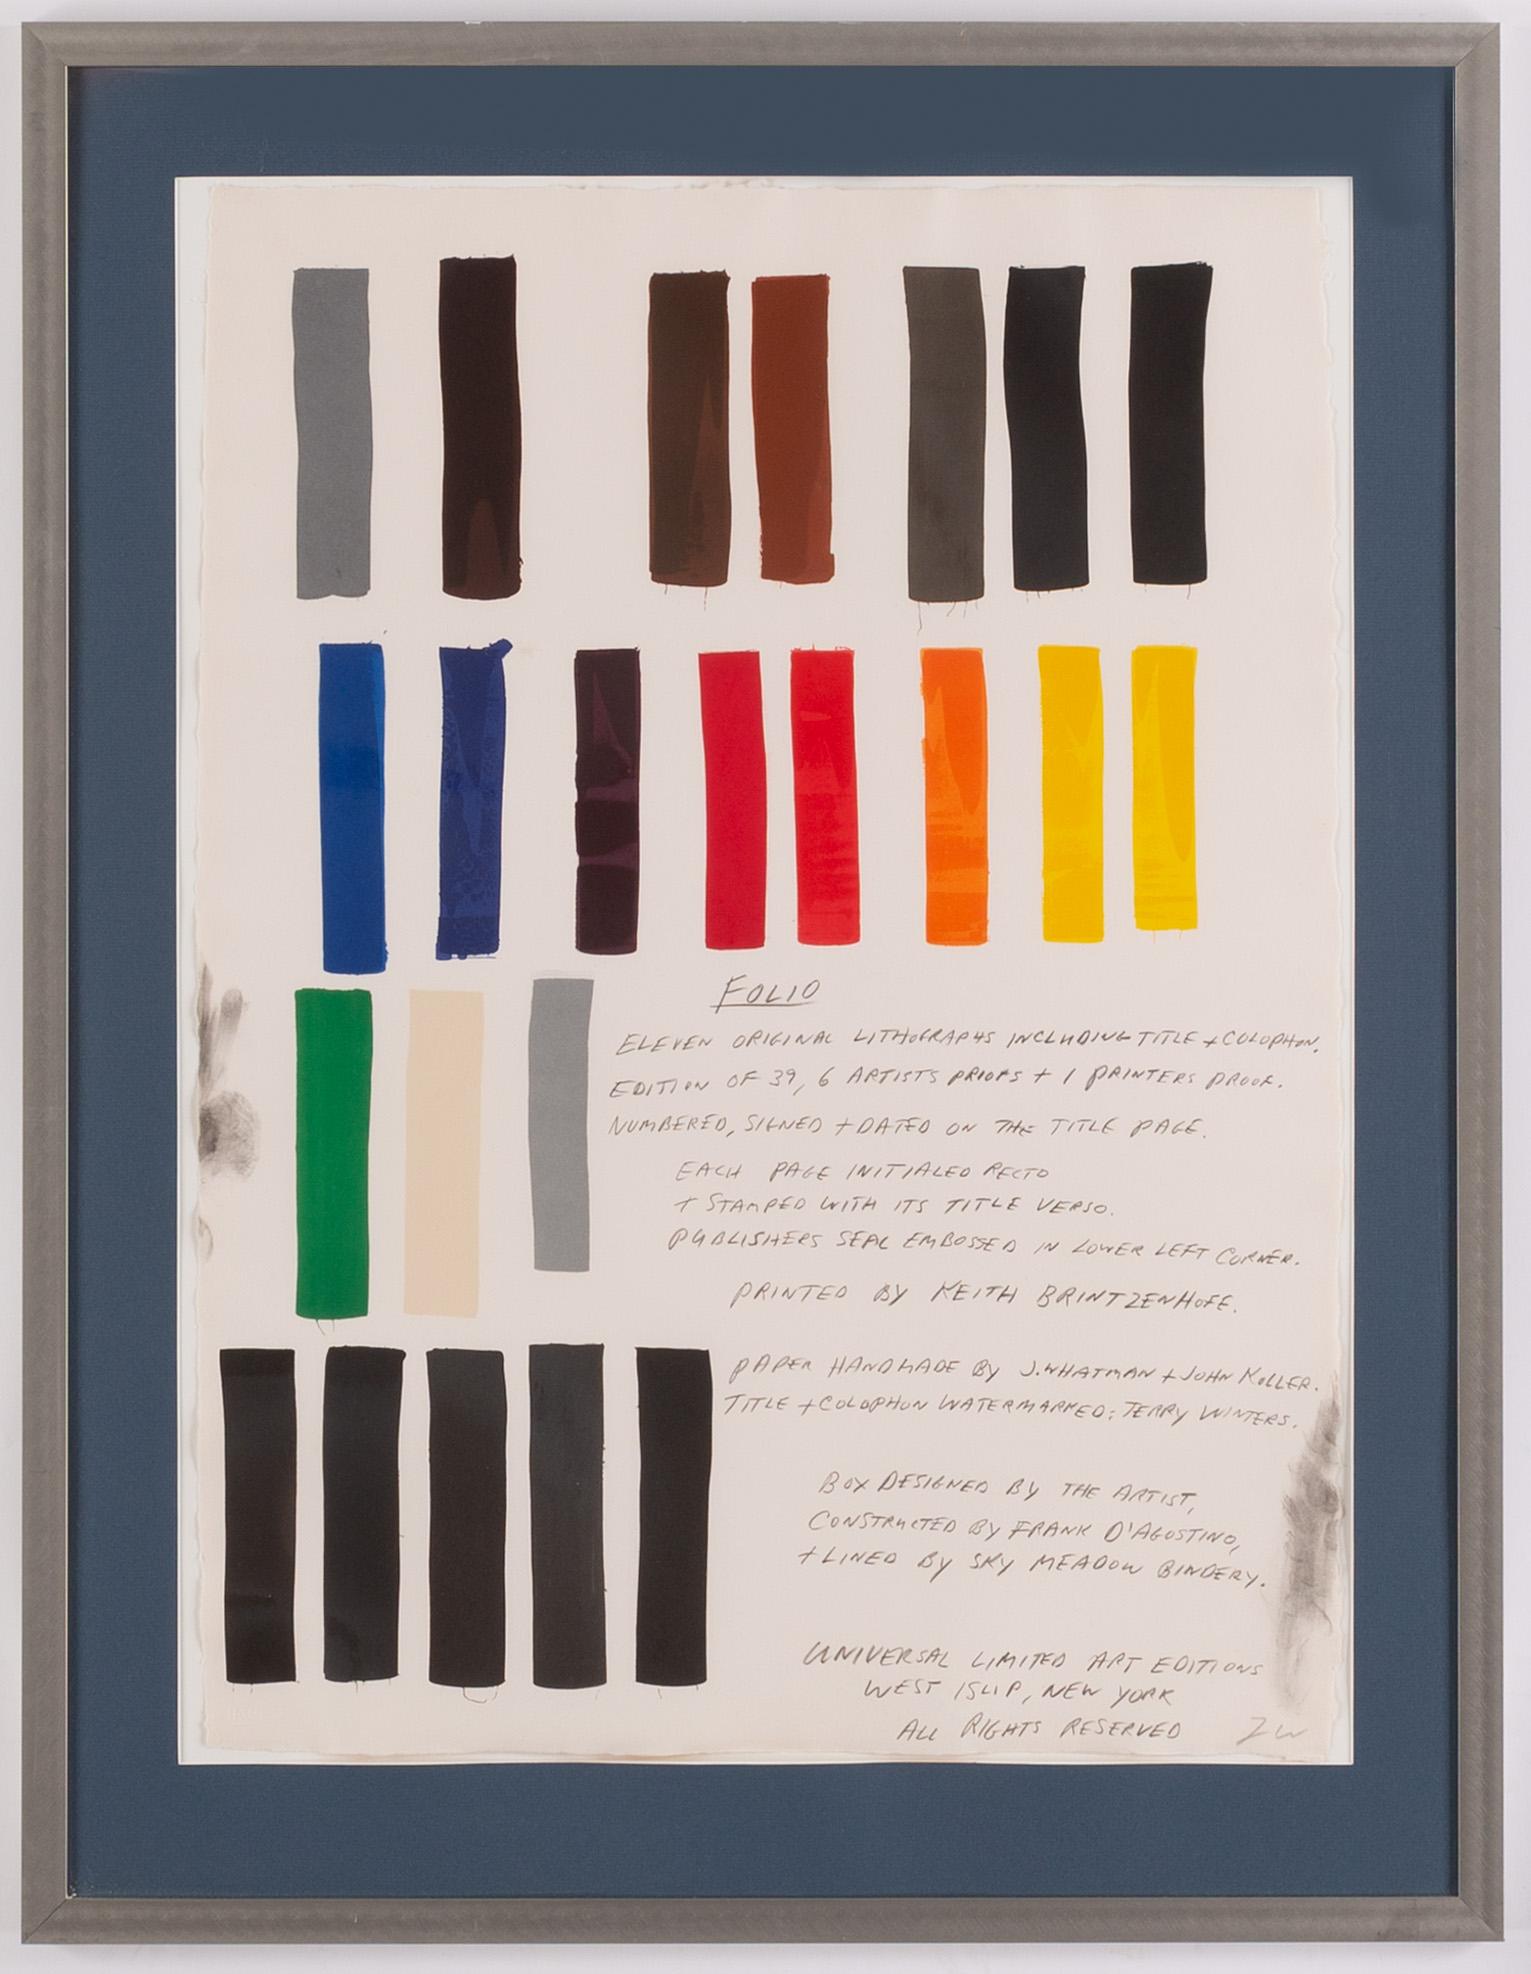 FOLIO
ELEVEN ORIGINAL LITHOGRAPHS INCLUDING TITLE + COLOPHON.
EDITION OF 39, 6 ARTISTS PROOFS + 1 PRINTERS PROOF.
NUMBERED, SIGNED + DATED ON THE TITLE PAGE.
EACH PAGE INITIALED RECTO
+ STAMPED WITH ITS TITLE VERSO.
PUBLISHERS SEAL EMBOSSED IN LOWER LEFT CORNER.
PRINTED BY KEITH BRINTZENHOFE.
PAPER HANDMADE BY J. WHATMAN + JOHN KOLLER.
TITLE + COLOPHON WATERMARKED: TERRY WINTERS.
BOX DESIGNED BY THE ARTIST,
CONSTRUCTED BY FRANK D'AGOSTINO,
+ LINED BY SKY MEADOW BINDERY.
UNIVERSAL LIMITED ART EDITIONS
WEST ISLIP, NEW YORK
ALL RIGHTS RESERVED TW